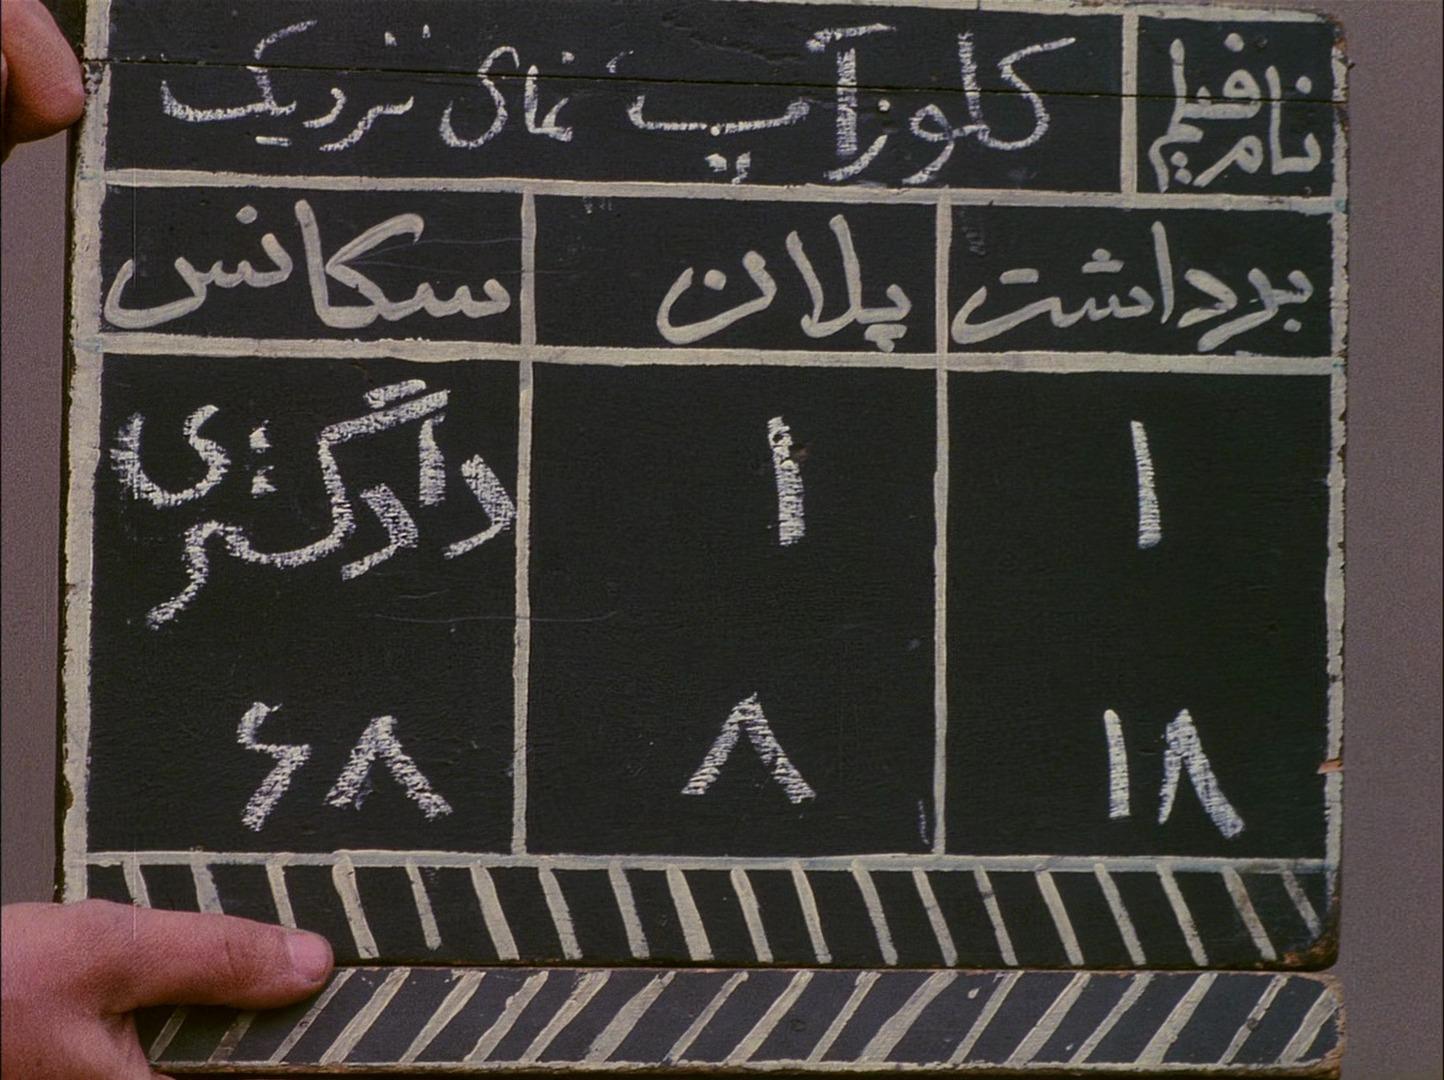 نام فیلم
کلوزآپ، نمای نزدیک
برداشت
پلان
سکانس
۱
۱
دادگستری
۱۸
۸
۶۸